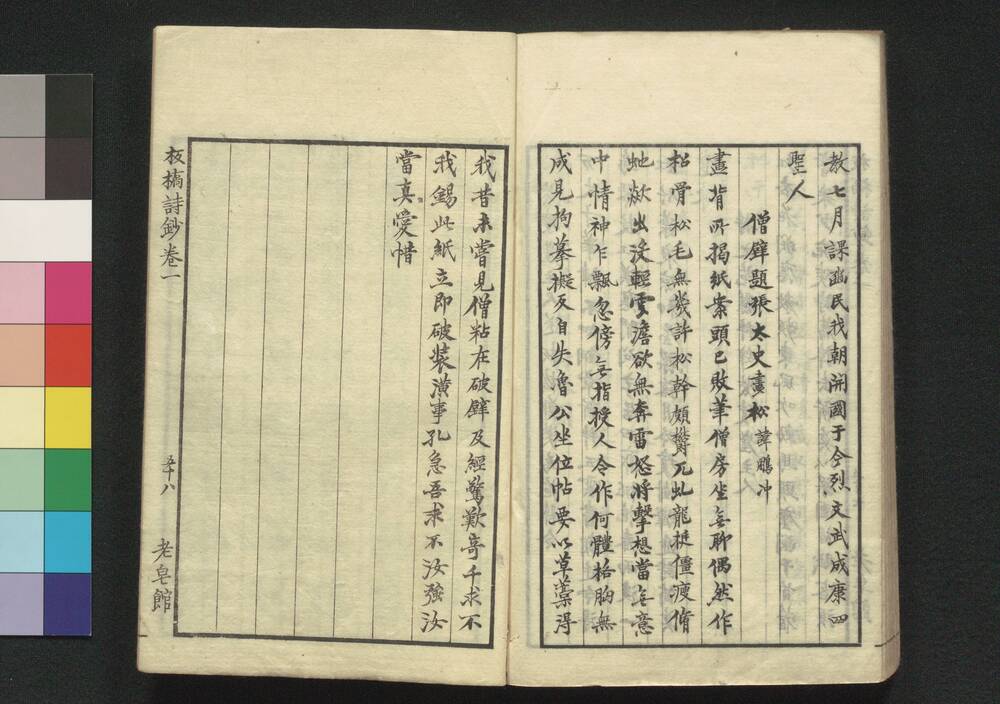 教七月課豳民我朝開國于今烈文武成康四
聖人
僧壁題張太史畫松諱鵬冲
畫背所揭紙案頭已敗筆僧房坐無聊偶然作
松骨松毛無幾許松幹頗鬱兀虬龍挺僵瘦脩
虵歘出沒輕雲澹欲無奔雷怒將擊想當無意
中情神乍飄忽傍無指授人令作何體格胸無
成見拘摹擬反自失魯公坐位帖要以草藁得
我昔未嘗見僧粘在破壁及經驚歎奇千求不
我錫此紙立即破裝潢事孔急吾求不汝強汝
當真愛惜
板橋詩鈔卷一
五十八
老皂館